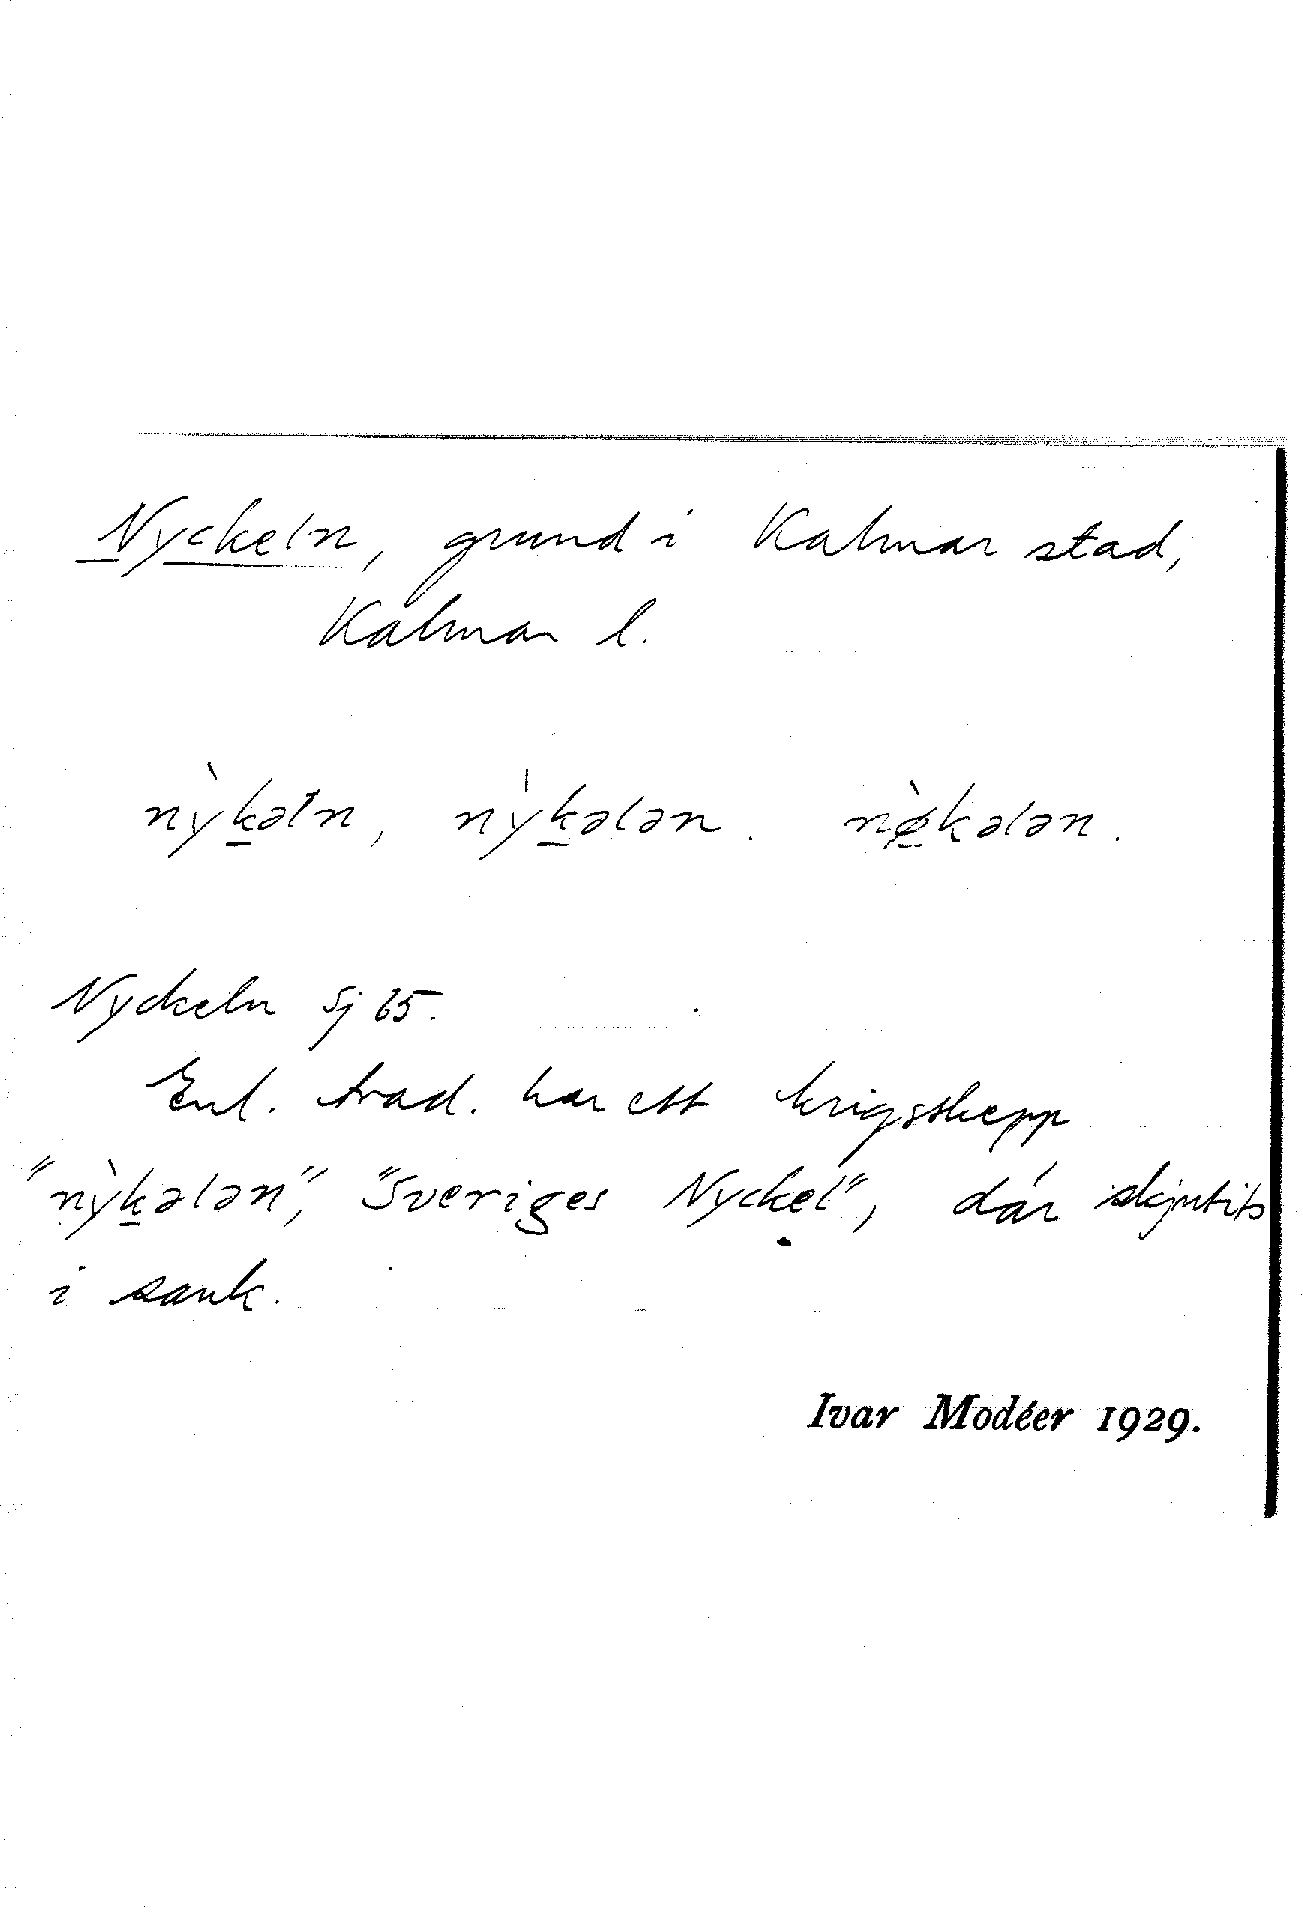 Nyckeln, grund i Kalmar stad,
Kalmar l.
nỳk̲əln, nỳk̲ələn. nø̲̀kələn.
Nyckeln Sj 65.
Enl. trad. har ett krigsskepp
"nỳk̲ələn", "Sveriges Nyckel", där skjutits
i sank.
Ivar Modéer 1929.